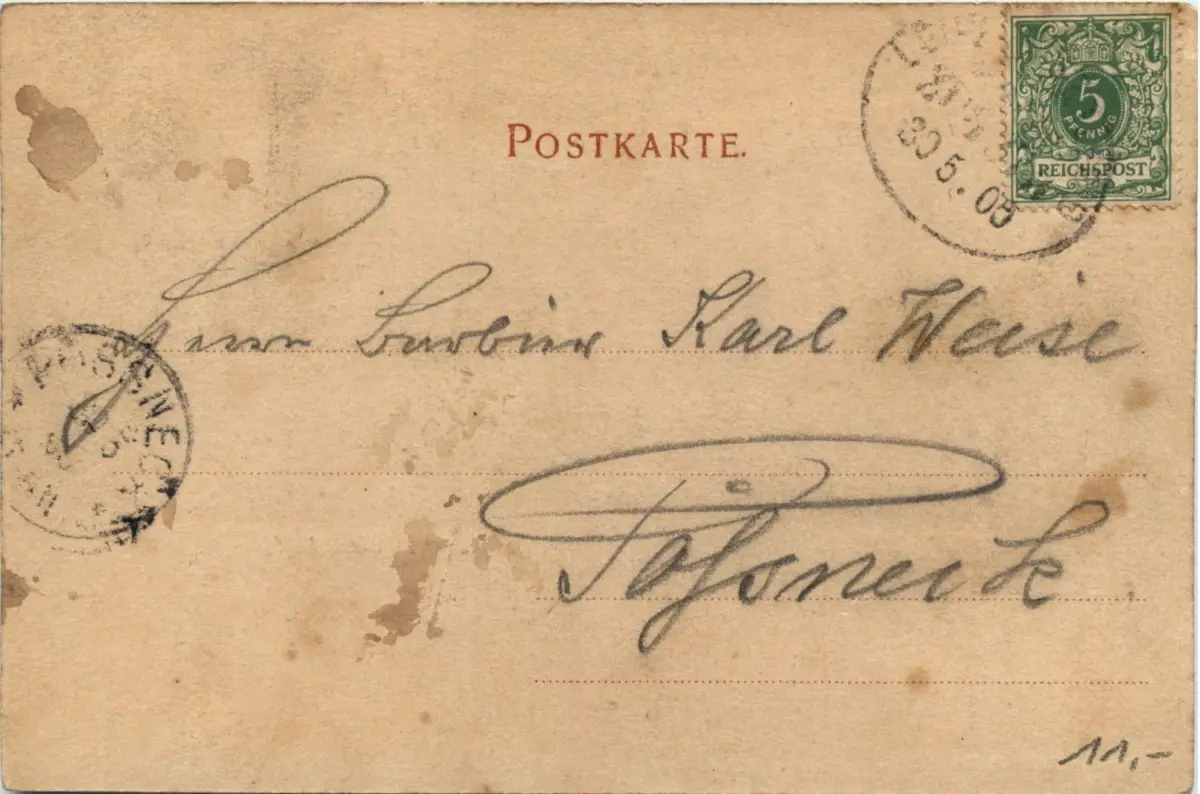 POSTKARTE.
5
PFENNIG
REICHSPOST
30 5. 
Herrn Barbier Karl Weise
PÖSSNECK
Pößneck
11,-